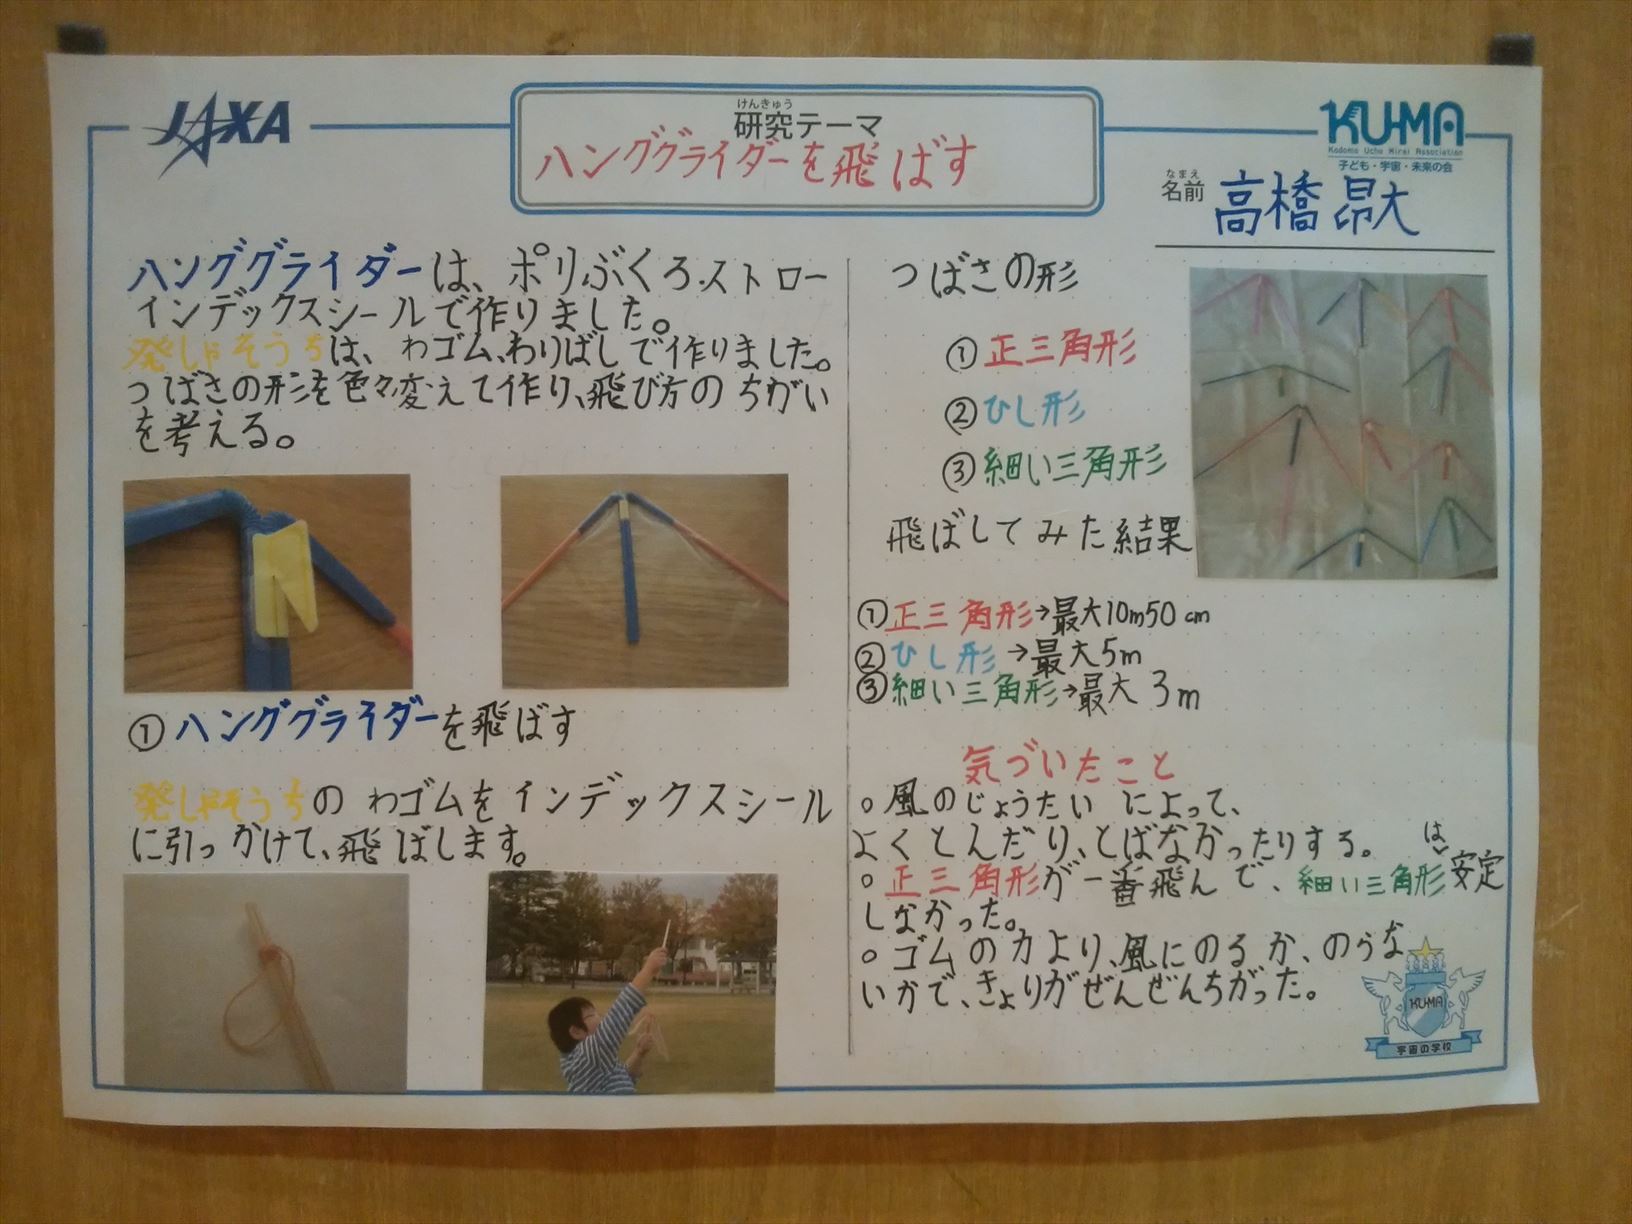 JAXA
けんきゅう
研究テーマ
ハンググライダーを飛ばす
KU-MA
Kodomo Uchu Mirai Association
子ども・宇宙・未来の会
なまえ
名前 高橋昂大
ハンググライダーは、ポリぶくろ・ストロー
インデックスシールで作りました。
発しゃそうちは、わゴム、わりばしで作りました。
つばさの形を色々変えて作り、飛び方のちがい
を考える。
① ハンググライダーを飛ばす
発しゃそうちの わゴムをインデックスシール
に引っかけて、飛ばします。
つばさの形
① 正三角形
② ひし形
③ 細い三角形
飛ばしてみた結果
① 正三角形→最大10m50cm
② ひし形→最大5m
③ 細い三角形→最大3m
気づいたこと
○風のじょうたいによって、
よくとんだり、とばなかったりする。
○正三角形が一番飛んで、細い三角形は安定
しなかった。
○ゴムの力より、風にのるか、のらな
いかで、きょりがぜんぜんちがった。
KU-MA
宇宙の学校